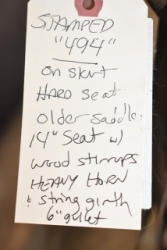 STAMPED
"494"
on skirt
HARD Seat
older saddle.
14" Seat w/
wood stirrups
HEAVY HORN
& string girth
6" gullet